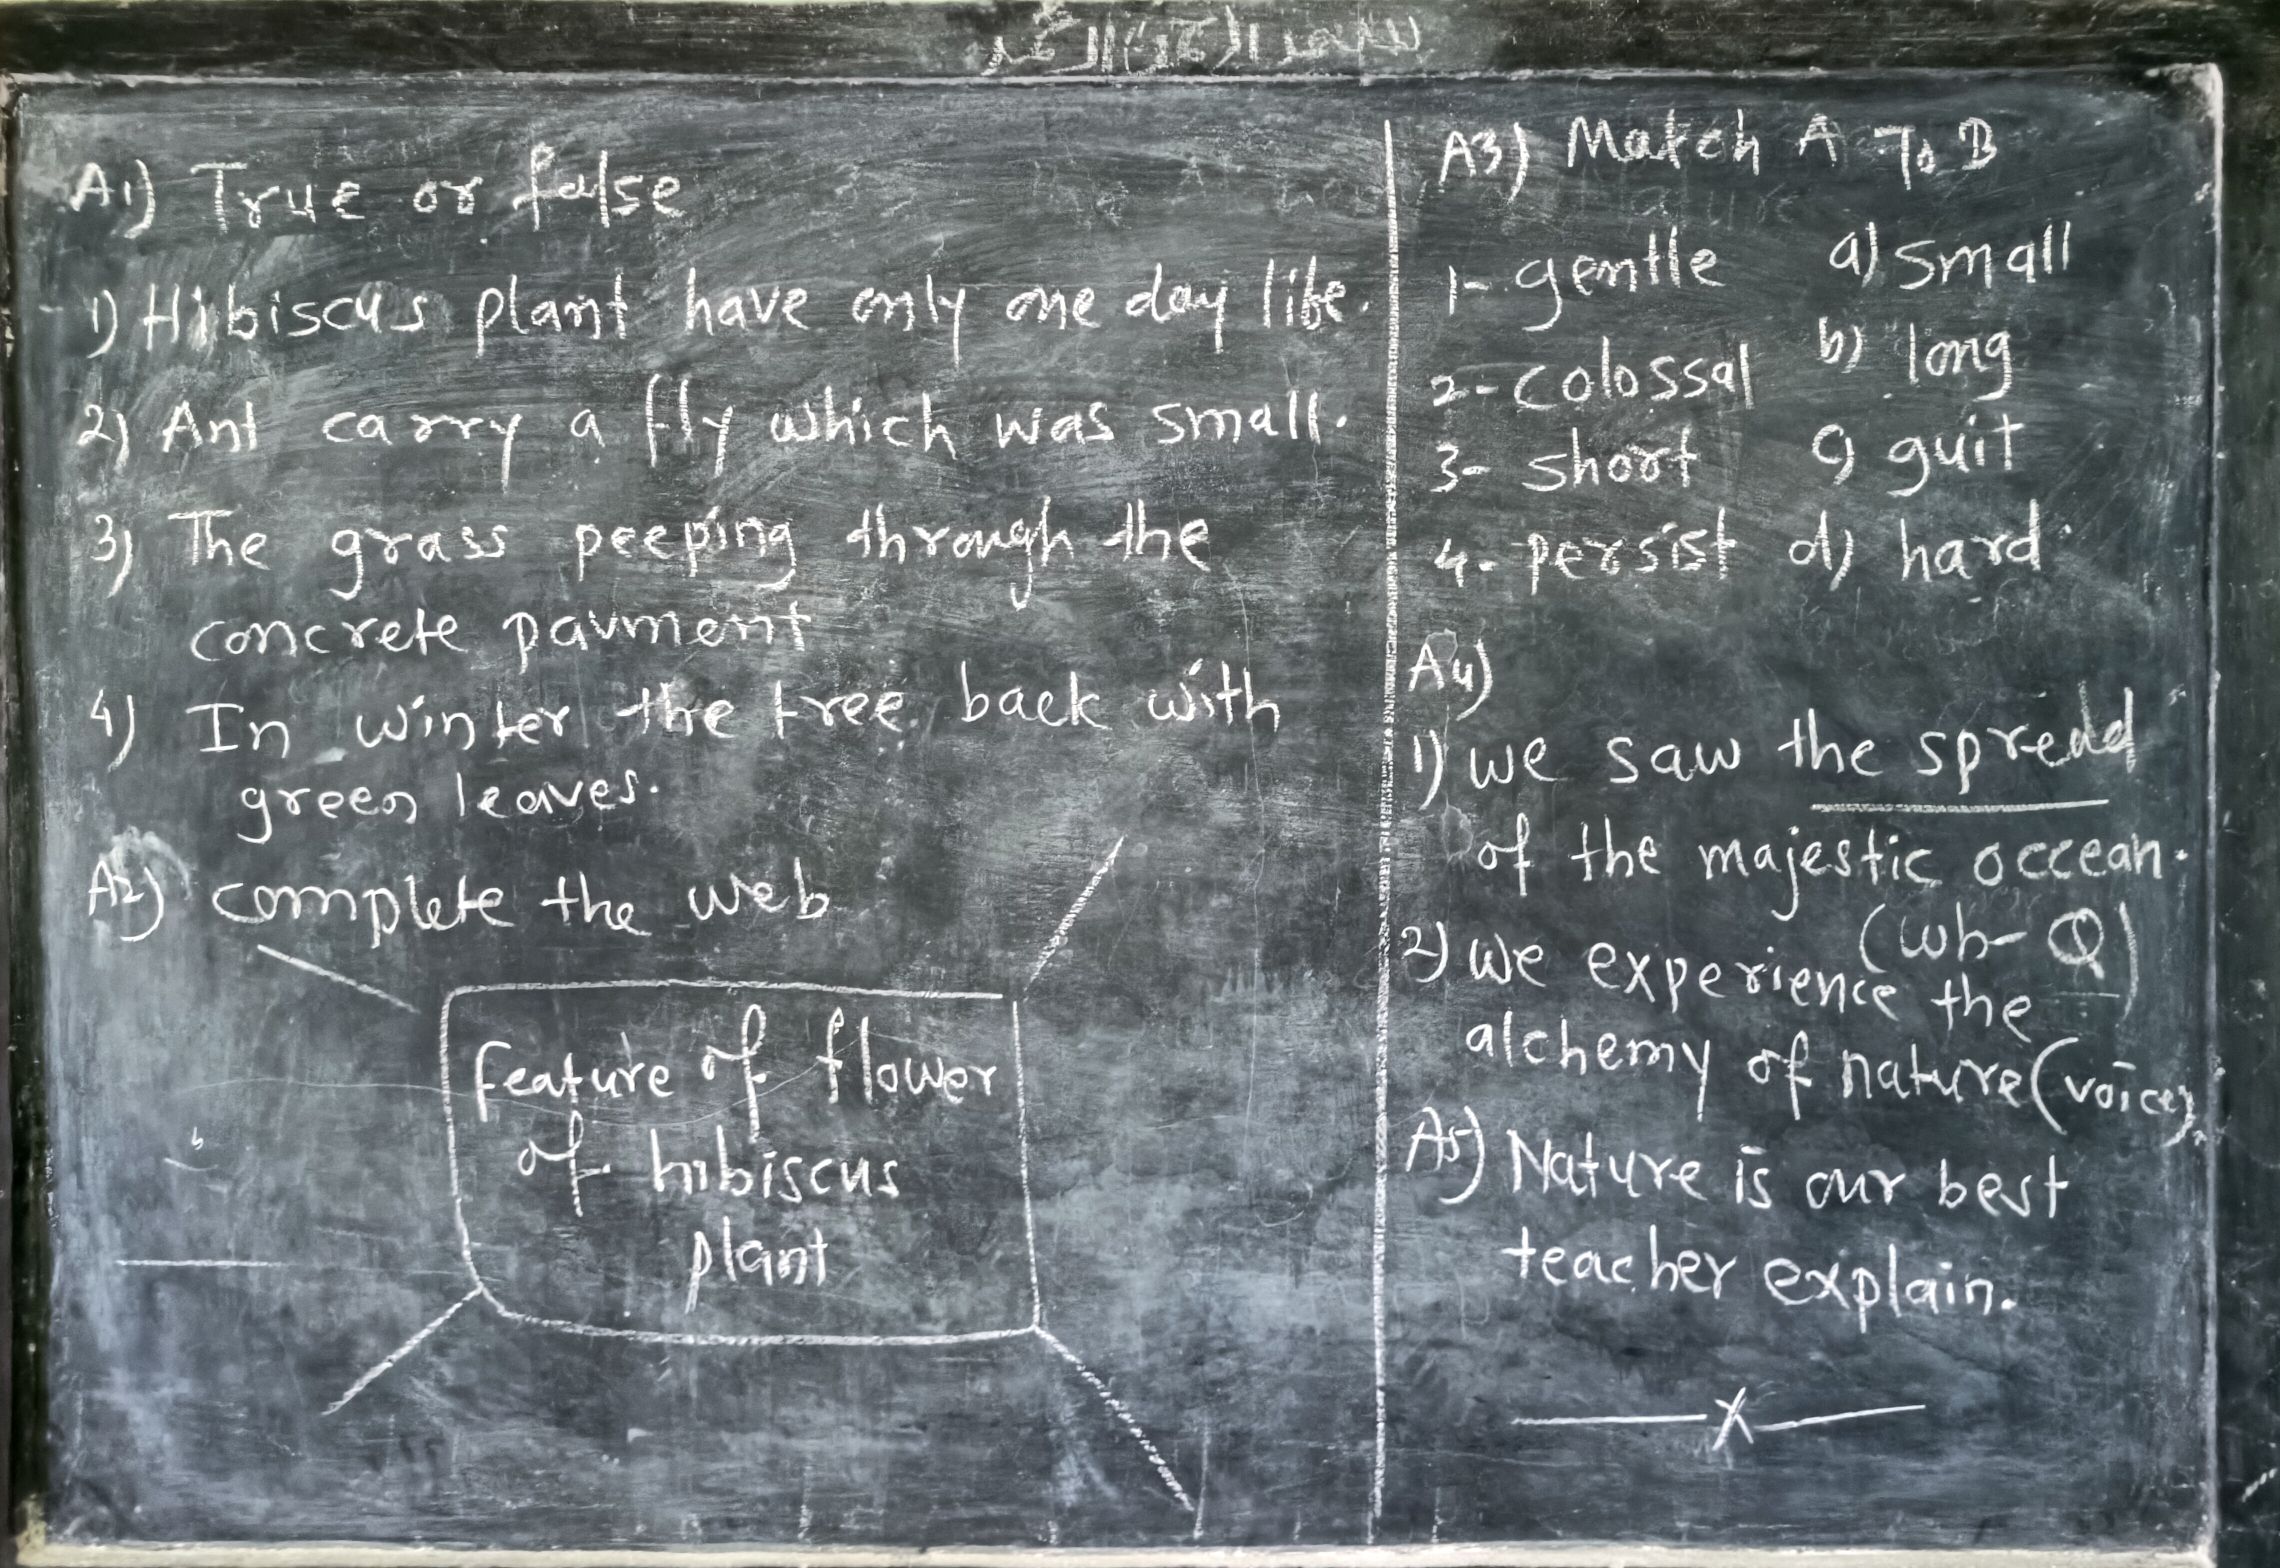 بسم اللہ الرحمن الرحیم
A1) True or false
1) Hibiscus plant have only one day life.
2) Ant carry a fly which was small.
3) The grass peeping through the
concrete pavment
4) In winter the tree back with
green leaves.
A2) complete the web
feature of flower
of hibiscus
plant
A3) Match A To B
1- gentle a) small
2- colossal b) long
3- short c) guit
4- persist d) hard
A4)
1) we saw the spread
of the majestic occean.
(wh-Q)
2) we experience the
alchemy of nature (voice)
A5) Nature is our best
teacher explain.
X